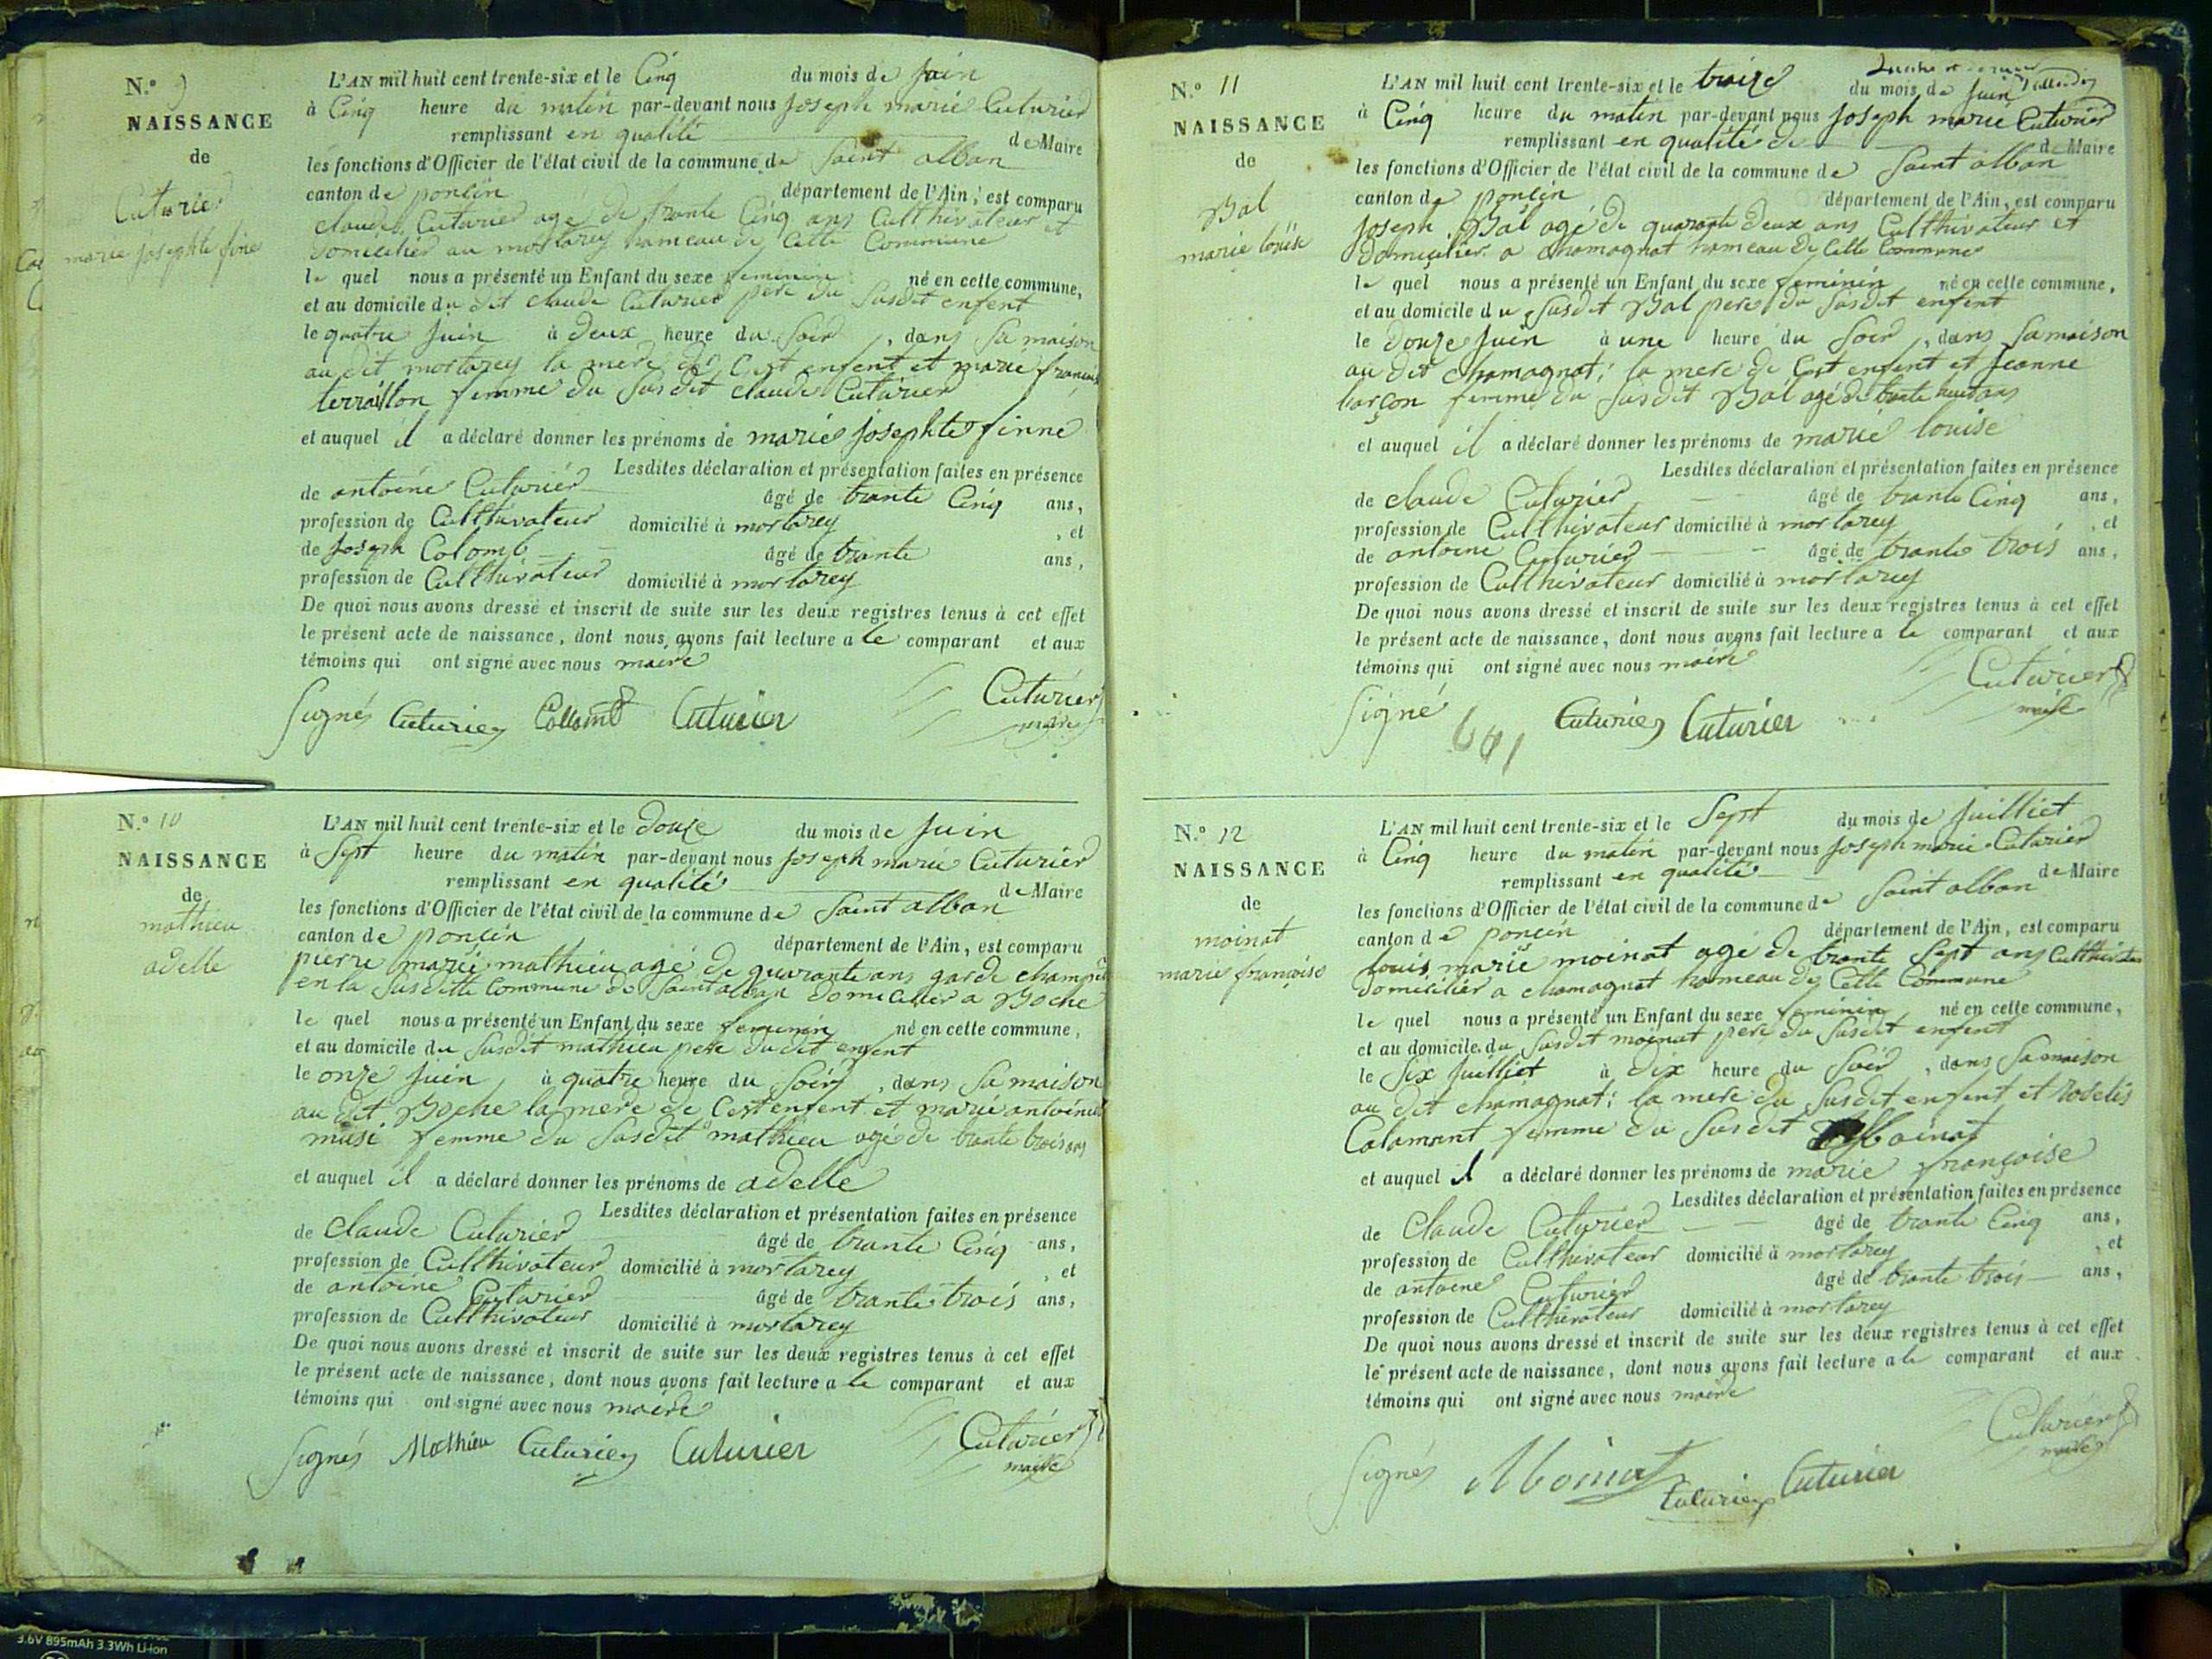 N.° 9
NAISSANCE
de
Cuturier
marie josephte fine
L'AN mil huit cent trente-six et le Cinq du mois de juin
à Cinq heure du matin par-devant nous joseph marie Cuturier
remplissant en qualité de Maire
les fonctions d'Officier de l'état civil de la commune de Saint alban
canton de poncin département de l'Ain, est comparu
claude Cuturier agé de trante Cinq ans Culthivateur et
domicilier au mortarey hameau de Cette Commune
le quel nous a présenté un Enfant du sexe feminin né en cette commune,
et au domicile du dit claude Cuturier pere du susdit enfent
le quatre juin à deux heure du Soir, dans sa maison
au dit mortarey la mere de Cest enfent et marie
terraillon femme du susdit claude Cuturier
et auquel il a déclaré donner les prénoms de marie josephte finne
Lesdites déclaration et présentation faites en présence
de antoine Cuturier âgé de trante Cinq ans,
profession de Culthivateur domicilié à mortarey, et
de joseph Colomb âgé de trante ans,
profession de Culthivateur domicilié à mortarey
De quoi nous avons dressé et inscrit de suite sur les deux registres tenus à cet effet
le présent acte de naissance, dont nous avons fait lecture a le comparant et aux
témoins qui ont signé avec nous maire
Signés Cuturier Collomb Cuturier Cuturier
maire
N.° 10
NAISSANCE
de
mathieu
adelle
L'AN mil huit cent trente-six et le douze du mois de juin
à Sept heure du matin par-devant nous joseph marie Cuturier
remplissant en qualité de Maire
les fonctions d'Officier de l'état civil de la commune de Saint alban
canton de poncin département de l'Ain, est comparu
pierre marie mathieu agé de quarante ans garde
en la susditte Commune de Saint alban domicilier a Boche
le quel nous a présenté un Enfant du sexe feminin né en cette commune,
et au domicile du susdit mathieu pere du dit enfent
le onze juin, à quatre heure du Soir, dans sa maison
au dit Boche la mere de Cest enfent et marie
musi femme du susdit mathieu agé de trante trois ans
et auquel il a déclaré donner les prénoms de adelle
Lesdites déclaration et présentation faites en présence
de claude Cuturier âgé de trante Cinq ans,
profession de Culthivateur domicilié à mortarey, et
de antoine Cuturier âgé de trante trois ans,
profession de Culthivateur domicilié à mortarey
De quoi nous avons dressé et inscrit de suite sur les deux registres tenus à cet effet
le présent acte de naissance, dont nous avons fait lecture a le comparant et aux
témoins qui ont signé avec nous maire
Signés Mathieu Cuturier Cuturier Cuturier
maire
N.° 11
NAISSANCE
de
Bal
marie louise
L'AN mil huit cent trente-six et le traize du mois de juin
à Cinq heure du matin par-devant nous joseph marie Cuturier
remplissant en qualité de de Maire
les fonctions d'Officier de l'état civil de la commune de Saint alban
canton de poncin département de l'Ain, est comparu
joseph Bal agé de quarante deux ans Culthivateur et
domicilier a chamagnat hameau de Cette Commune
le quel nous a présenté un Enfant du sexe feminin né en cette commune,
et au domicile du susdit Bal pere du susdit enfent
le douze juin à une heure du Soir, dans sa maison
au dit chamagnat; la mere de Cest enfent et jeanne
barçon femme du susdit Bal agé de trante huit ans
et auquel il a déclaré donner les prénoms de marie louise
Lesdites déclaration et présentation faites en présence
de claude Cuturier âgé de trante Cinq ans,
profession de Culthivateur domicilié à mortarey, et
de antoine Cuturier âgé de trante trois ans,
profession de Culthivateur domicilié à mortarey
De quoi nous avons dressé et inscrit de suite sur les deux registres tenus à cet effet
le présent acte de naissance, dont nous avons fait lecture a le comparant et aux
témoins qui ont signé avec nous maire
Signé bal Cuturier Cuturier Cuturier
maire
N.° 12
NAISSANCE
de
moinat
marie françoise
L'AN mil huit cent trente-six et le Sept du mois de juilliet
à Cinq heure du matin par-devant nous joseph marie Cuturier
remplissant en qualité de Maire
les fonctions d'Officier de l'état civil de la commune de Saint alban
canton de poncin département de l'Ain, est comparu
louis marie moinat agé de trante Sept ans
domicilier a chamagnat hameau de Cette Commune
le quel nous a présenté un Enfant du sexe feminin né en cette commune,
et au domicile du susdit moinat pere du susdit enfent
le Six juilliet à dix heure du Soir, dans sa maison
au dit chamagnat; la mere du susdit enfent et
Calamant femme du susdit Moinat
et auquel il a déclaré donner les prénoms de marie françoise
Lesdites déclaration et présentation faites en présence
de Claude Cuturier âgé de trante Cinq ans,
profession de Culthivateur domicilié à mortarey, et
de antoine Cuturier âgé de trante trois ans,
profession de Culthivateur domicilié à mortarey
De quoi nous avons dressé et inscrit de suite sur les deux registres tenus à cet effet
le présent acte de naissance, dont nous avons fait lecture a le comparant et aux
témoins qui ont signé avec nous maire
Signés Moinat Cuturier Cuturier Cuturier
maire
3.6V 895mAh 3.3Wh Li-ion